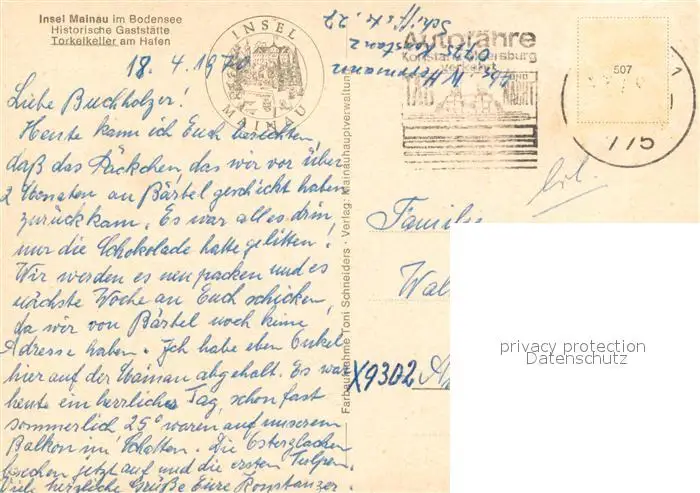 Insel Mainau im Bodensee
Historische Gaststätte
Torkelkeller am Hafen
INSEL
MAINAU
18.4.1970
Liebe Buchholzer!
Heute kann ich Euch berichten,
daß das Päckchen das wir vor über
2 Monaten an Bärbel geschickt haben
zurückkam. Es war alles drin,
nur die Schokolade hatte gelitten!
Wir werden es neu packen und es
nächste Woche an Euch schicken,
da wir von Bärbel noch keine
Adresse haben. Ich habe eben Onkel
hier auf der Mainau abgeholt. Es war
heute ein herrlicher Tag, schon fast
sommerlich 25° waren auf unserem
Balkon im Schatten. Die Osterglocken
brechen jetzt auf und die ersten Tulpen.
Viele herzliche Grüße Eure Konstanzer.
Farbaufnahme Toni Schneiders · Verlag: Mainauhauptverwaltung
Abs. W. Herrmann
775 Konstanz
Schiffstr. 27
Autofähre
Konstanz-Meersburg
verkehrt
TAG
UND
NACHT
507
775
Familie
Wal
X9302
privacy protection
Datenschutz